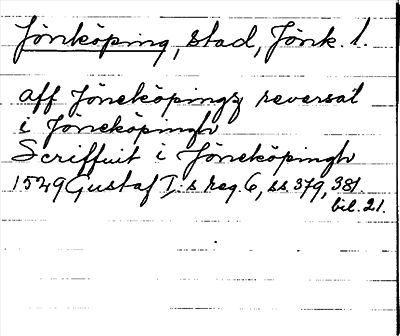 Jönköping, stad, Jönk. l.
aff Jöneköpingz reversal
i Jöneköpingh
Scriffuit i Jöneköpingh
1529 Gustaf I:s reg. 6, ss 379, 381.
bil. 21.